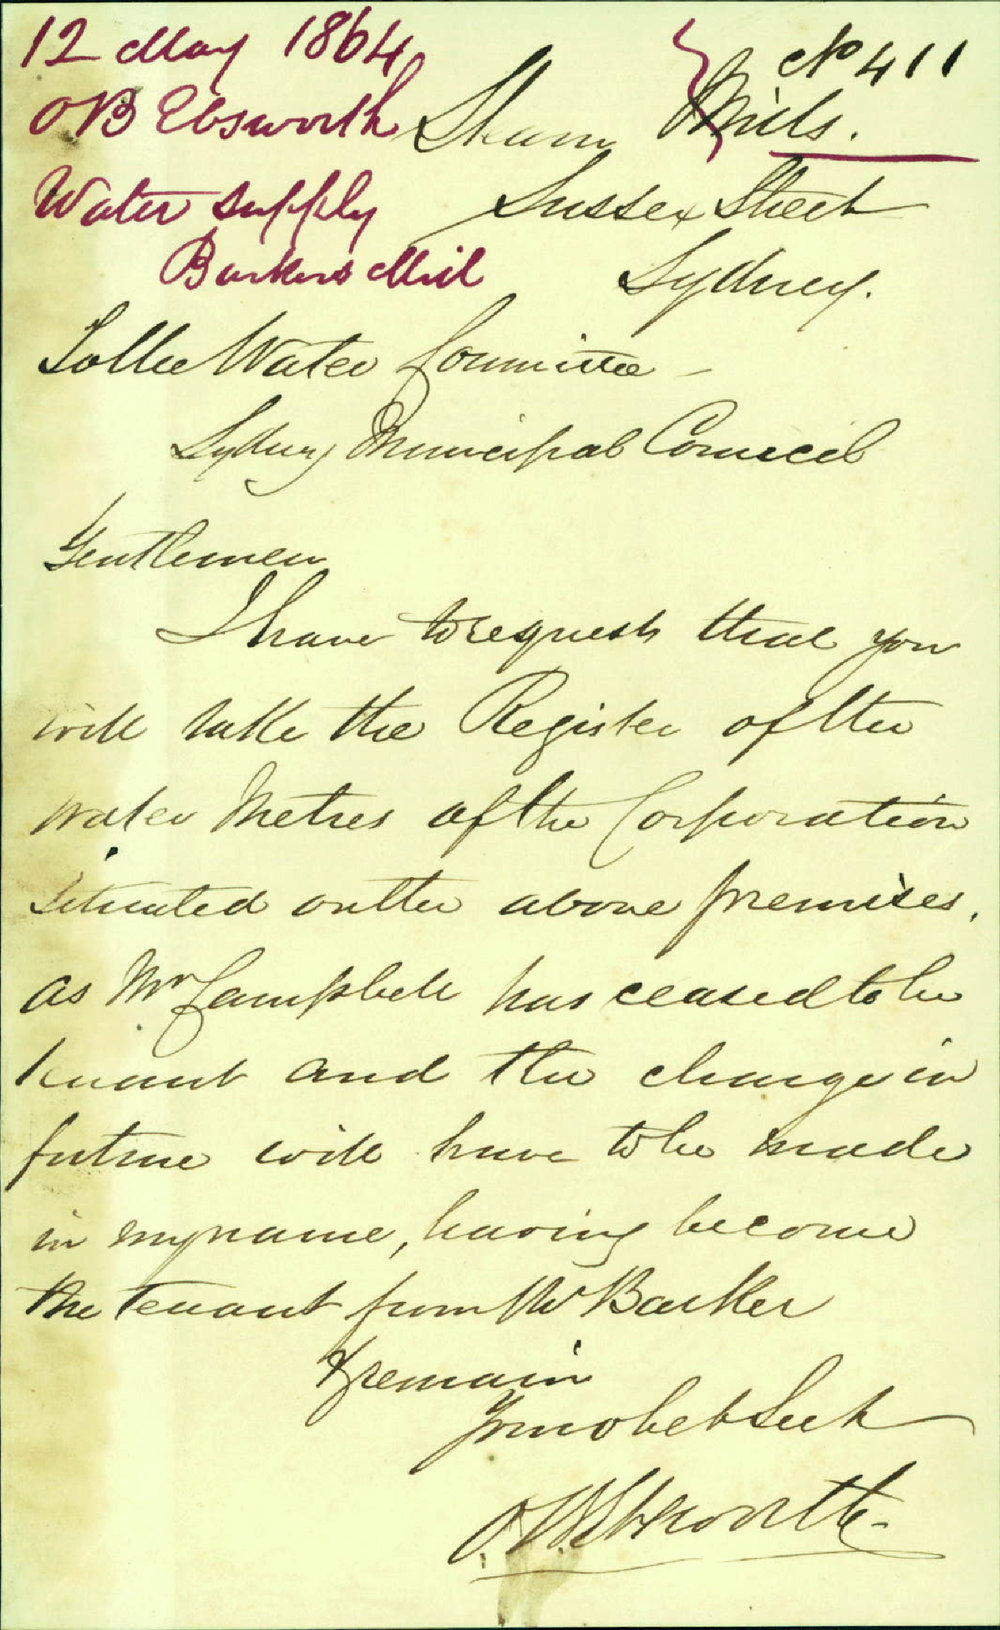 12 May 1864
No 411
OB Ebsworth
Steam Mills.
Water supply
Sussex Street
Barkers Mill
Sydney.
To the Water Committee
Sydney Municipal Council
Gentlemen
I have to request that you
will take the Register of the
water Metres of the Corporation
situated on the above premises,
as Mr Campbell has ceased to be
tenant and the charge in
future will have to be made
in my name, having become
the tenant from Mr Barker
I remain
Your obedt Servt
O. B. Ebsworth